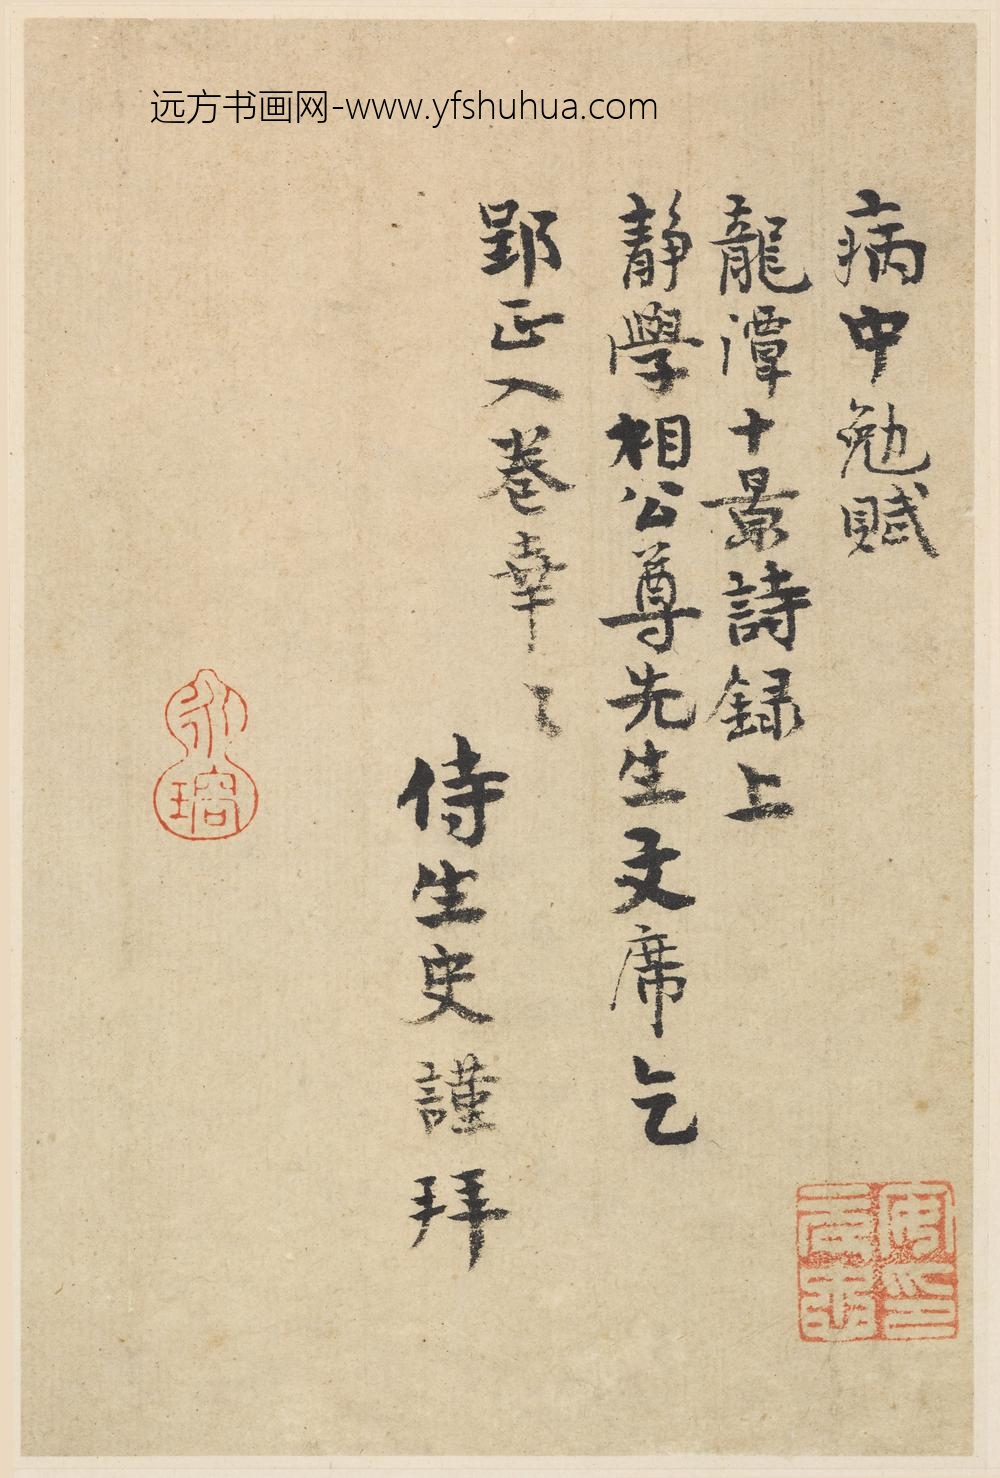 远方书画网-www.yfshuhua.com
病中勉賦
龍潭十景詩録上
靜學相公尊先生文席乞
郢正入卷幸〻
侍生史謹拜
永瑢